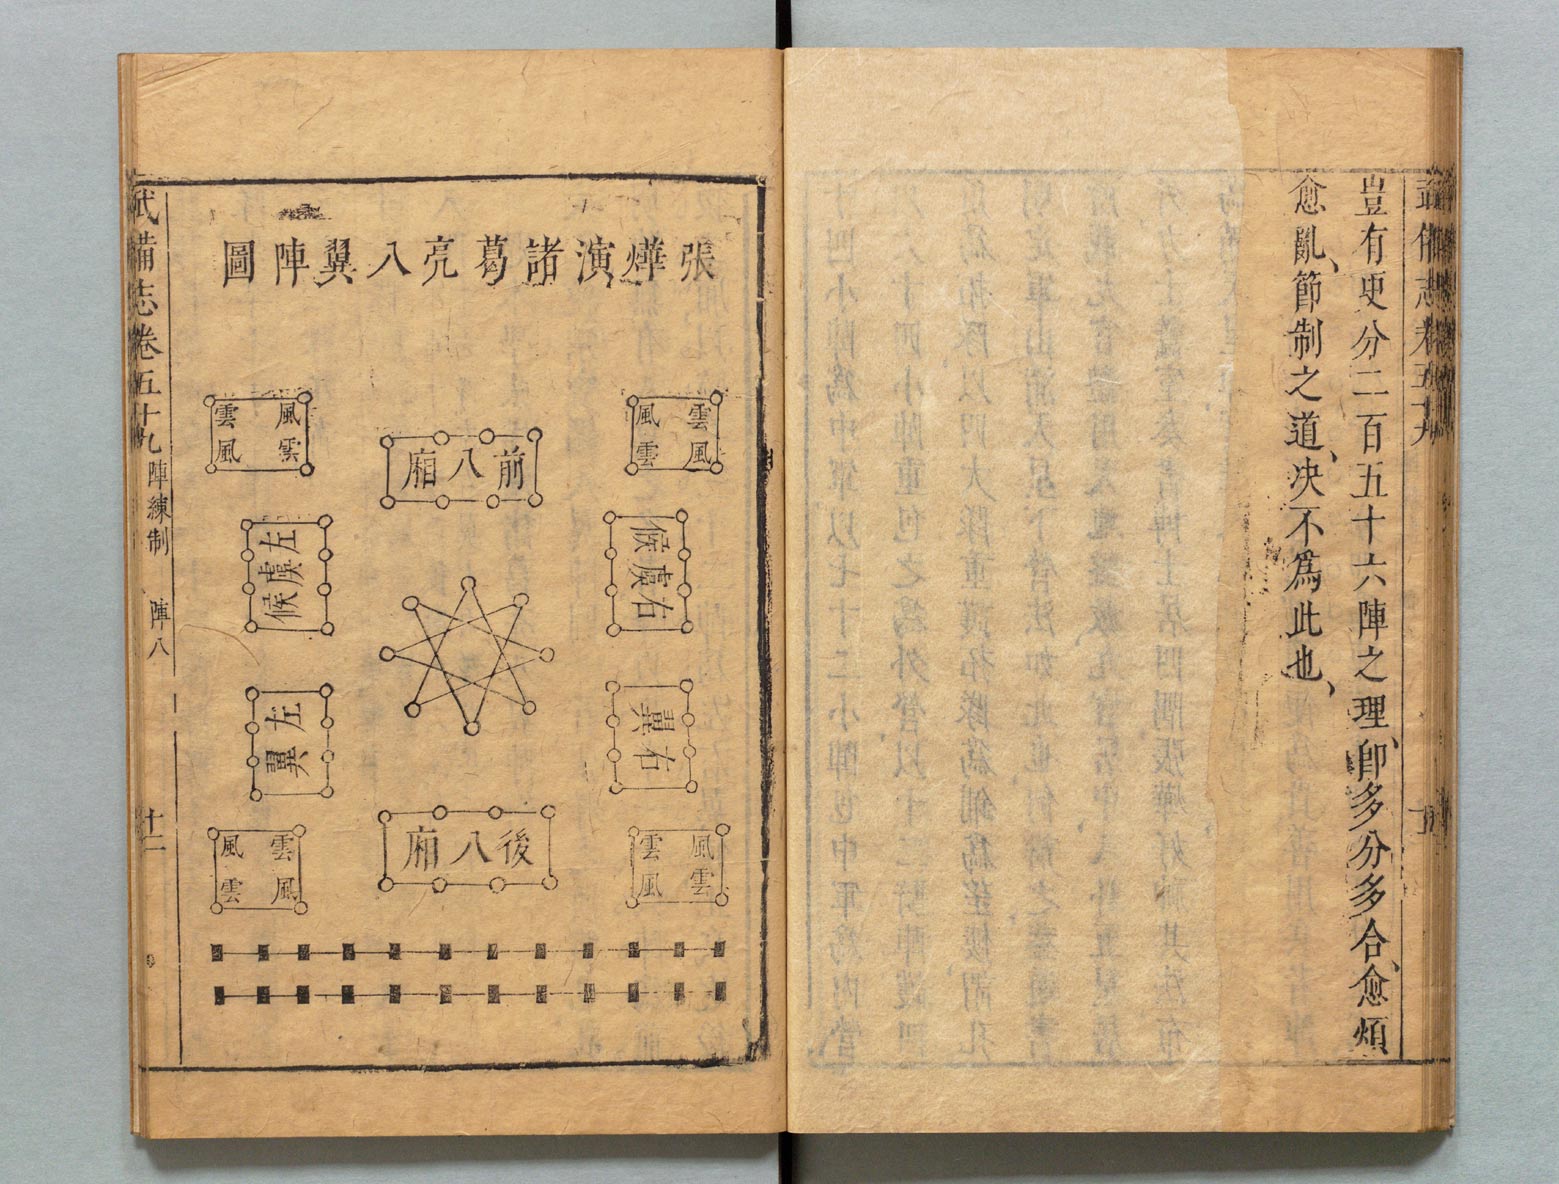 豈有更分二百五十六陣之理、卽多分多合、愈煩
愈亂、節制之道、决不爲此也、
張燁演諸葛亮八翼陣圖
雲風
風雲
前八廂
風雲
雲風
右虞候
左虞候
右翼
左翼
風雲
雲風
後八廂
雲風
風雲
武備志卷五十九
陣練制
陣八
十一